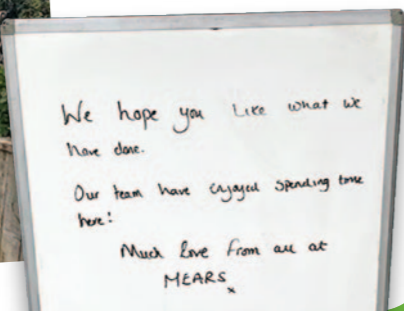 We hope you like what we
have done.
Our team have enjoyed spending time
here!
Much love from all at
MEARS
x